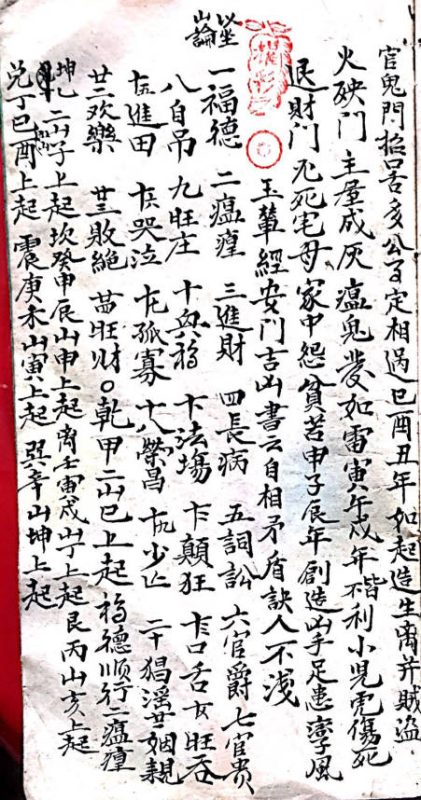 官鬼門招口舌多公事定相遇巳酉丑年如起造生离并賊盗
火殃門主屋成灰瘟鬼發如雷寅午戌年利小児虎傷死
退財門死宅母家中怨貧苦申子辰年創造凶手足患风
玉輦經安門吉凶書云自相矛盾訣人不浅
以坐山論
一福德 二瘟瘟 三進財 四長病 五詞訟 六官爵 七官贵
八自吊 九旺庄 十興福 十一法場 十二顛狂 十三口舌 十四旺蚕
十五進田 十六哭泣 十七孤寡 十八榮昌 十九少亡 二十猖淫 廿一姻親
廿二欢樂 廿三敗絶 廿四旺财○乾甲二山巳上起 福德順行二瘟瘟
坤乙二山子上起坎癸申辰山申上起离壬寅戌山丁上起艮丙山亥上起
兌丁巳酉上起震庚未山寅上起巽辛山坤上起